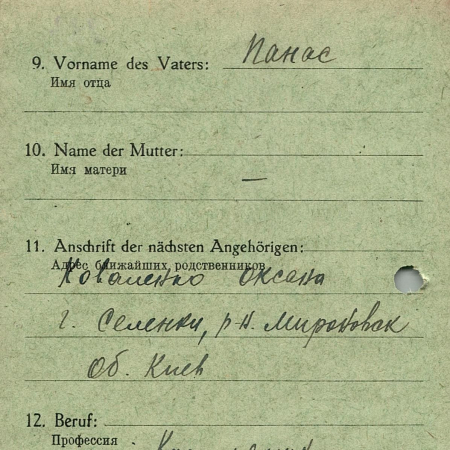 9. Vorname des Vaters: Панас
Имя отца
10. Name der Mutter:
Имя матери
—
11. Anschrift der nächsten Angehörigen:
Адрес ближайших родственников
Коваленко Оксана
г. Селенки, р-н. Мироновск
Об. Киев
12. Beruf:
Профессия